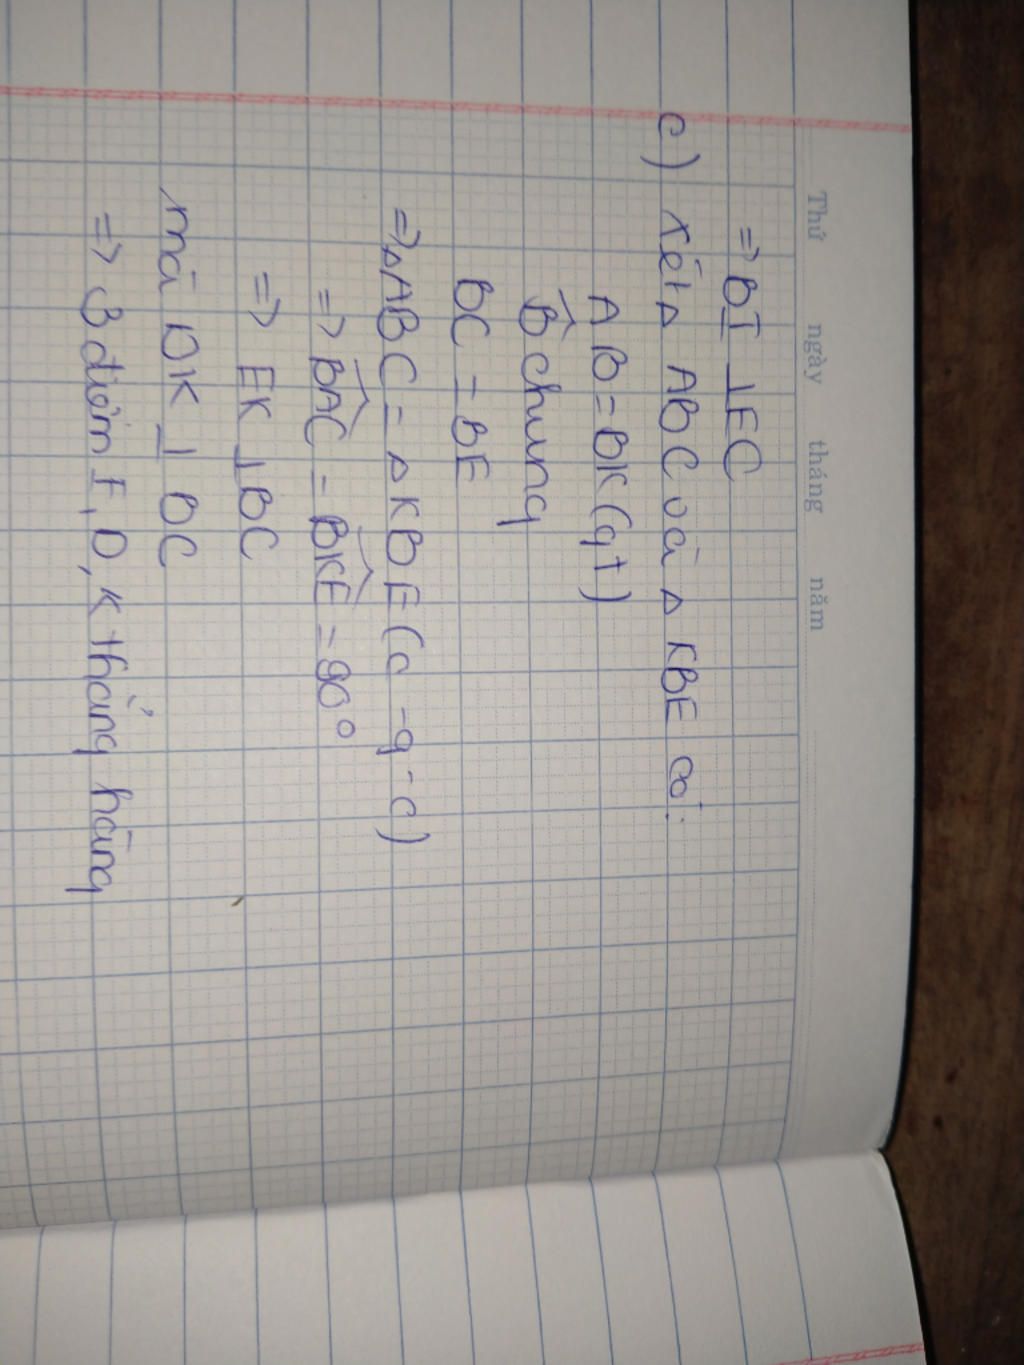 Thứ ngày tháng năm
=> BI ⊥ EC
c) xét Δ ABC và Δ KBE có:
AB = BK (gt)
B̂ chung
BC = BE
=> Δ ABC = Δ KBE (c - g - c)
=> B̂AC = B̂KE = 90°
=> EK ⊥ BC
mà DK ⊥ BC
=> 3 điểm E, D, K thẳng hàng